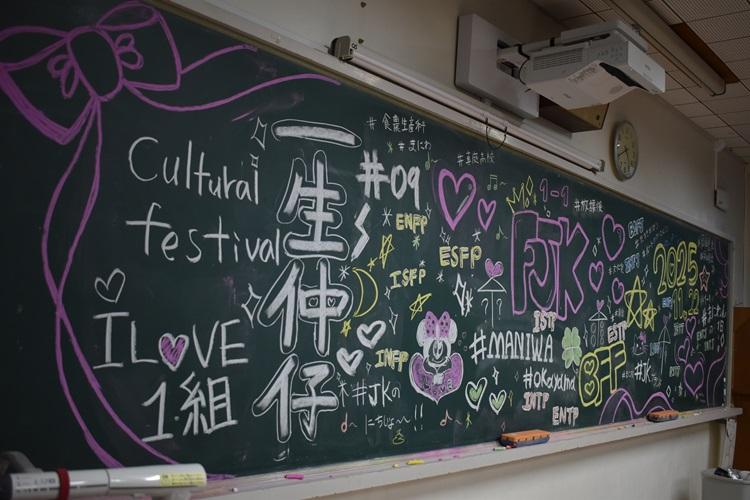 Cultural
festival
I LOVE
1組
一生仲仔
#食農生産科
#まにわ
#09
#真庭高校
#放課後
ENFP
ESFP
ISFP
INFP
1-1
FJK
#MANIWA
#okayama
#JKの
にちじょ〜!!
INTP
ENTP
BFF
2025
11.22
#JK
LOVE